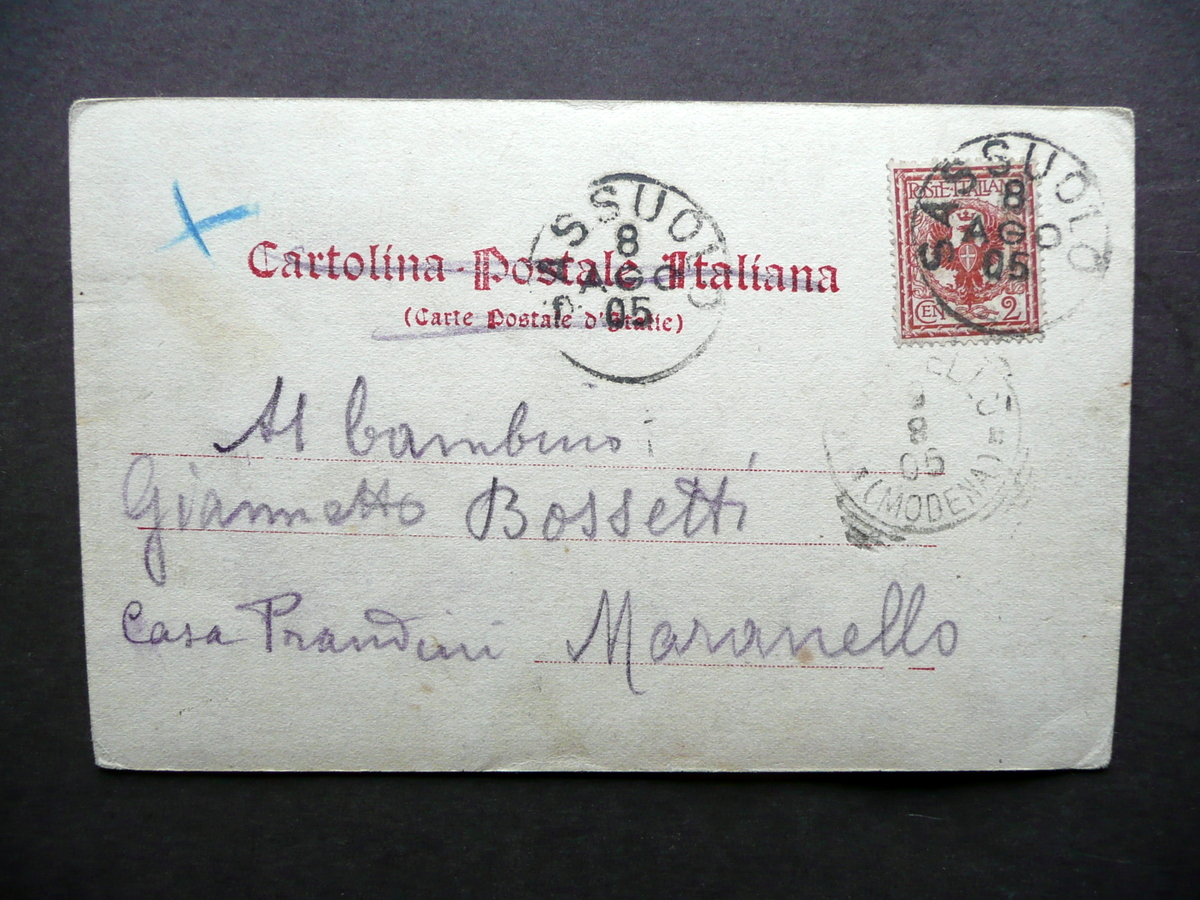 SASSUOLO
8
AGO
05
POSTE ITALIANE
CEN 2
SASSUOLO
8
AGO
05
Cartolina Postale Italiana
(Carte Postale d'Italie)
8
05
(MODENA)
Al bambino:
Giannetto Bossetti
Casa Prandini Maranello